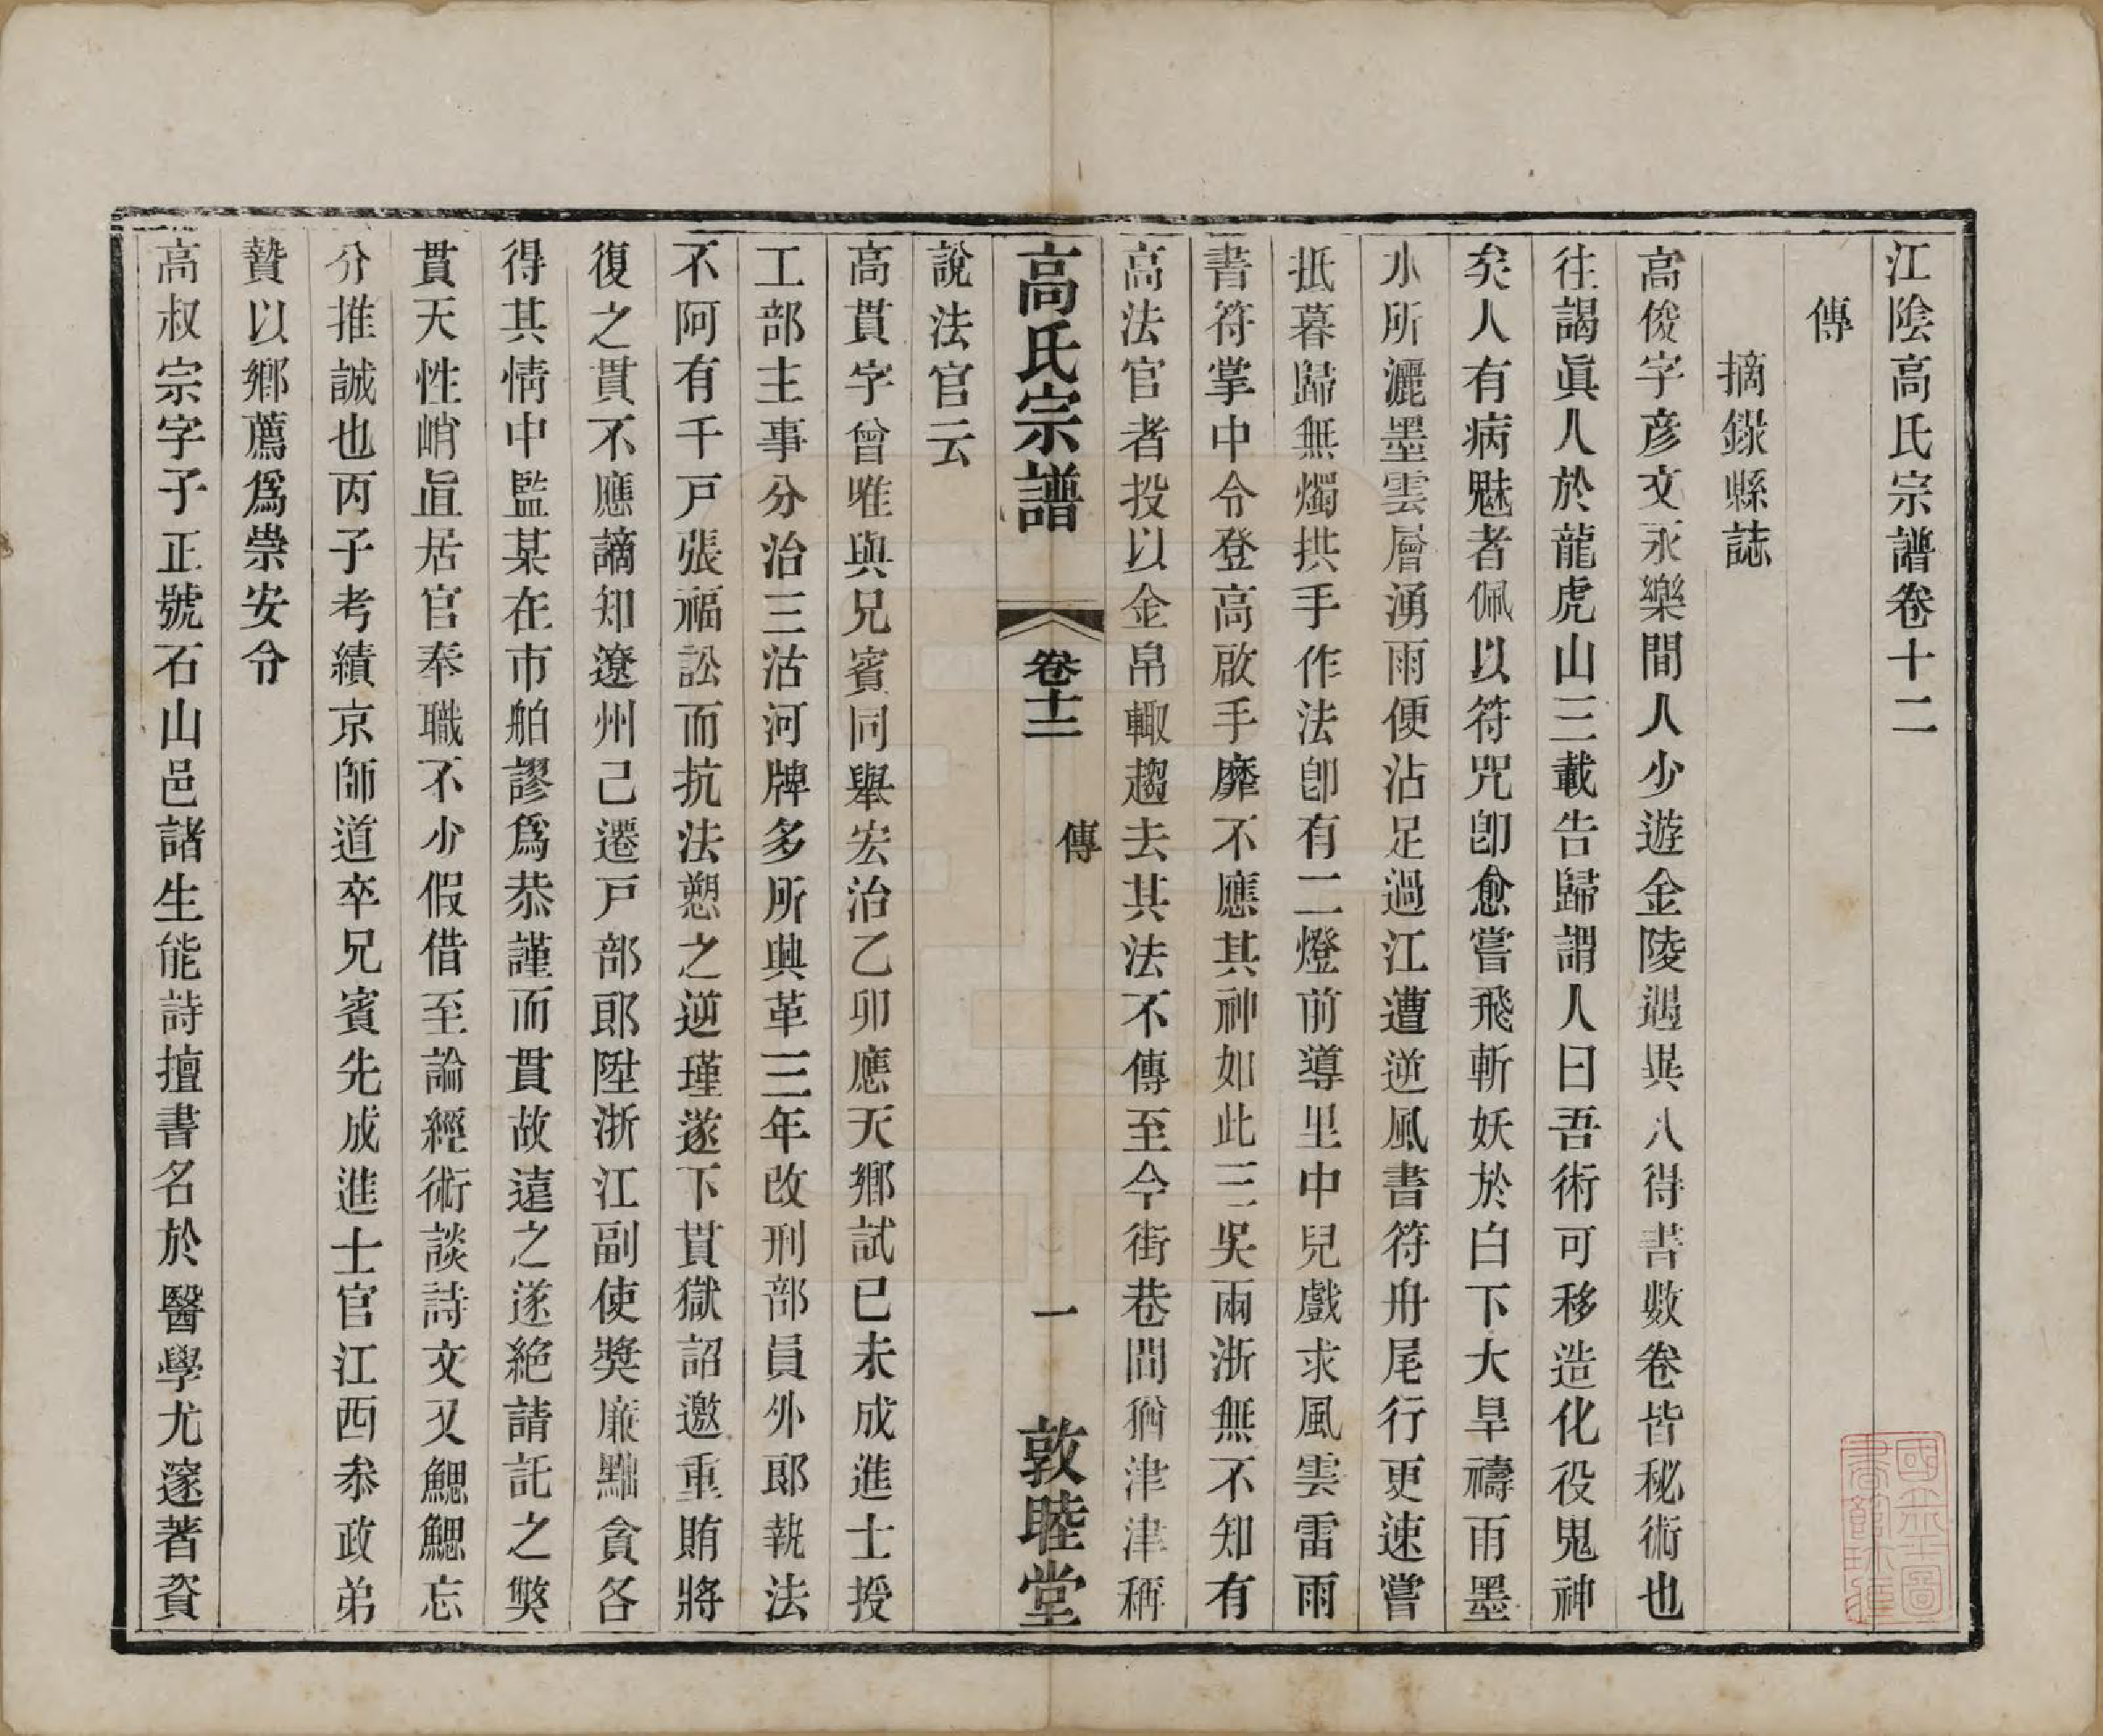 江陰高氏宗譜卷十二
傳
摘錄縣誌
高俊字彥文永樂間人少遊金陵遇異人得書數卷皆秘術也
往謁眞人於龍虎山三載告歸謂人曰吾術可移造化役鬼神
矣人有病魅者佩以符咒卽愈嘗飛斬妖於白下大旱禱雨墨
水所灑墨雲層湧雨便沾足過江遭逆風書符舟尾行更速嘗
抵暮歸無燭拱手作法卽有二燈前導里中兒戲求風雲雷雨
書符掌中令登高啟手靡不應其神如此三吳兩浙無不知有
高法官者投以金帛輙趨去其法不傳至今街巷間猶津津稱
高氏宗譜
卷十二
傳
一
敦睦堂
說法官云
高貫字曾唯與兄賓同舉宏治乙卯應天鄉試己未成進士授
工部主事分治三沽河牌多所興革三年改刑部員外郎執法
不阿有千戸張福訟而抗法愬之逆瑾遂下貫獄詔邀重賄將
復之貫不應謫知遼州己遷戸部郎陞浙江副使獎廉黜貪各
得其情中監某在市舶謬爲恭謹而貫故遠之遂絕請託之獘
貫天性峭直居官奉職不少假借至論經術談詩文又鰓鰓忘
分推誠也丙子考績京師道卒兄賓先成進士官江西叅政弟
贄以鄉薦爲崇安令
高叔宗字子正號石山邑諸生能詩擅書名於醫學尤邃著資